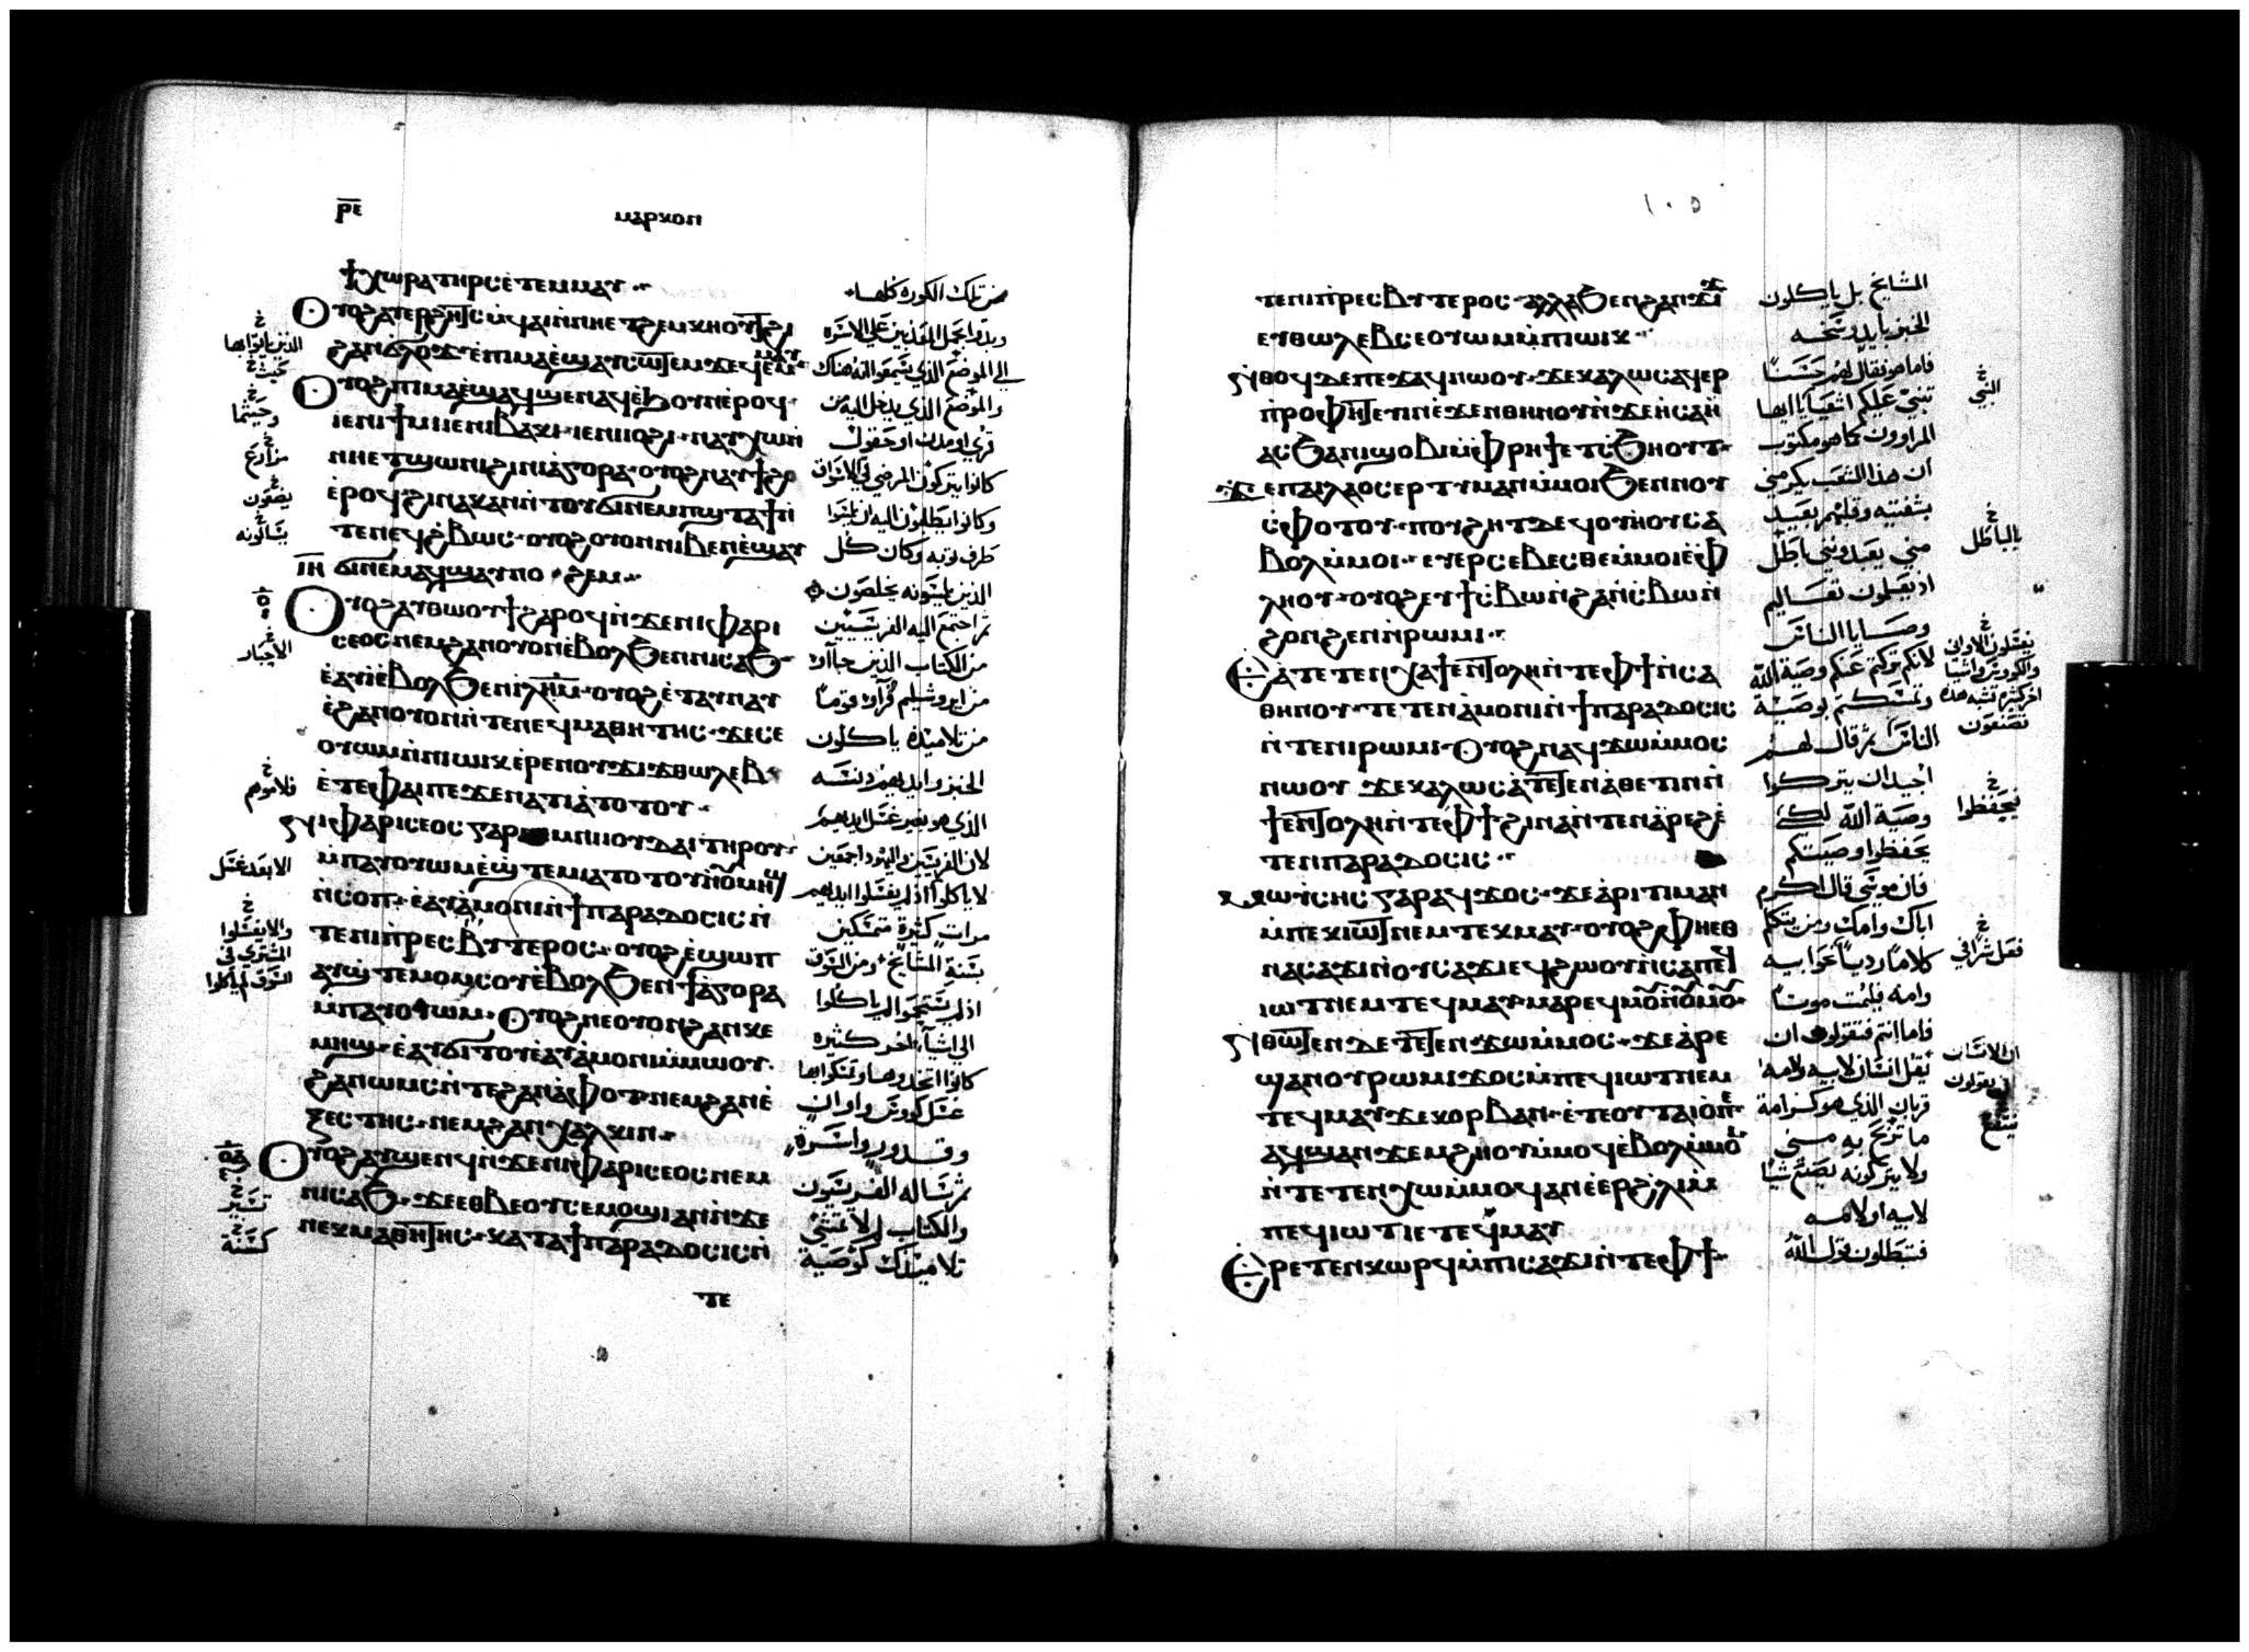 ⲣ̅ⲉ̅
ⲙⲁⲣⲕⲟⲛ
ϯⲭⲱⲣⲁ ⲧⲏⲣⲥ ⲉ̀ⲧⲉⲙⲙⲁⲩ
ⲟⲩⲟϩ ⲁⲩⲉⲣϩⲏⲧⲥ ⲛ̀ϥⲁⲓ ⲛ̀ⲛⲏ ⲉⲧϩⲉⲙⲕⲏⲟⲩⲧ ϩⲓ
ϩⲁⲛϭⲗⲟϫ ⲉ̀ⲡⲓⲙⲁ ⲉ̀ϣⲁⲩⲥⲱⲧⲉⲙ ϫⲉ ϥⲉⲙⲙⲁⲩ
ⲟⲩⲟϩ ⲡⲓⲙⲁ ⲉ̀ϣⲁϥϣⲉⲛⲁϥ ⲉ̀ϧⲟⲩⲛ ⲉ̀ⲣⲟϥ
ⲓⲉ ⲛⲓϯⲙⲓ ⲓⲉ ⲛⲓⲃⲁⲕⲓ ⲓⲉ ⲛⲓⲓⲟϩⲓ ⲛⲁⲩⲭⲱ ⲛ̀
ⲛⲏ ⲉⲧϣⲱⲛⲓ ϩⲓ ⲛⲓⲁ̀ⲅⲟⲣⲁ ⲟⲩⲟϩ ⲛⲁⲩϯϩⲟ
ⲉ̀ⲣⲟϥ ϩⲓⲛⲁ ⲕⲁⲛ ⲛ̀ⲧⲟⲩϭⲓⲛⲉⲙ ⲡϣⲧⲁϯ ⲛ̀
ⲧⲉ ⲡⲉϥϩ̀ⲃⲱⲥ ⲟⲩⲟϩ ⲟⲩⲟⲛ ⲛⲓⲃⲉⲛ ⲉ̀ϣⲁⲩ
ϭⲓⲛⲉⲙⲁϥ ϣⲁⲩⲛⲟϩⲉⲙ
ⲟⲩⲟϩ ⲁⲩⲑⲱⲟⲩϯ ϩⲁⲣⲟϥ ⲛ̀ϫⲉ ⲛⲓⲫⲁⲣⲓ
ⲥⲉⲟⲥ ⲛⲉⲙ ϩⲁⲛⲟⲩⲟⲛ ⲉ̀ⲃⲟⲗϧⲉⲛ ⲛⲓⲥⲁϧ
ⲉ̀ⲁⲩⲓ̀ ⲉ̀ⲃⲟⲗϧⲉⲛ ⲓ̅ⲗ̅ⲏ̅ⲙ̅ ⲟⲩⲟϩ ⲉ̀ⲧⲁⲩⲛⲁⲩ
ⲉ̀ϩⲁⲛⲟⲩⲟⲛ ⲛ̀ⲧⲉ ⲛⲉϥⲙⲁⲑⲏⲧⲏⲥ ϫⲉ ⲥⲉ
ⲟⲩⲱⲙ ⲛ̀ⲛⲓⲱⲓⲕ ⲉ̀ⲣⲉ ⲛⲟⲩϫⲓϫ ⲑⲱⲗⲉⲃ
ⲉ̀ⲧⲉ ⲫⲁⲓ ⲡⲉ ϫⲉⲛ ⲁⲧⲓⲁ̀ ⲧⲟⲧⲟⲩ
ⲛⲓⲫⲁⲣⲓⲥⲉⲟⲥ ⲅⲁⲣ ⲛⲉⲙ ⲛⲓⲓⲟⲩⲇⲁⲓ ⲧⲏⲣⲟⲩ
ⲙ̀ⲡⲁⲩⲟⲩⲱⲙ ⲉ̀ϣ̀ⲧⲉⲙⲓⲁ ⲧⲟⲧⲟⲩ ⲛ̀ⲟⲩⲙⲏϣ
ⲛ̀ⲥⲟⲡ ⲉ̀ⲁⲩⲁ̀ⲙⲟⲛⲓ ⲛ̀ϯⲡⲁⲣⲁⲇⲟⲥⲓⲥ ⲛ̀
ⲧⲉ ⲛⲓⲡ̀ⲣⲉⲥⲃⲩⲧⲉⲣⲟⲥ ⲟⲩⲟϩ ⲉ̀ϣⲱⲡ
ⲁⲩϣ̀ⲧⲉⲙⲟⲙⲥⲟⲩ ⲉ̀ⲃⲟⲗϧⲉⲛ ϯⲁ̀ⲅⲟⲣⲁ
ⲙ̀ⲡⲁⲩⲟⲩⲱⲙ ⲟⲩⲟϩ ⲛⲉⲟⲩⲟⲛ ϩⲁⲛⲕⲉ
ⲙⲏϣ ⲉ̀ⲁⲩϭⲓⲧⲟⲩ ⲉ̀ⲁ̀ⲙⲟⲛⲓ ⲙ̀ⲙⲱⲟⲩ
ϩⲁⲛⲱⲙⲥ ⲛ̀ⲧⲉ ϩⲁⲛⲁ̀ⲫⲟⲧ ⲛⲉⲙ ϩⲁⲛ
ⲝⲉⲥⲧⲏⲥ ⲛⲉⲙ ϩⲁⲛⲭⲁⲗⲕⲓⲛ
ⲟⲩⲟϩ ⲁⲩϣⲉⲛϥ ⲛ̀ϫⲉ ⲛⲓⲫⲁⲣⲓⲥⲉⲟⲥ ⲛⲉⲙ
ⲛⲓⲥⲁϧ ϫⲉ ⲉⲑⲃⲉⲟⲩ ⲥⲉⲙⲟϣⲓ ⲁⲛ ⲛ̀ϫⲉ
ⲛⲉⲕⲙⲁⲑⲏⲧⲏⲥ ⲕⲁⲧⲁ ϯⲡⲁⲣⲁⲇⲟⲥⲓⲥ ⲛ̀
ⲧⲉ
من تلك الكورة كلها
وبدوا بحمل المعذبين علي الاسرة
الي الموضع الذي يسمعوا انه هناك
والموضع الذي يدخل اليه من
قري او مدن او حقول
كانوا يتركون المرضي في الاسواق
وكانوا يطلبون اليه ان يلمسوا
طرف ثوبه وكان كل
الذين يلمسونه يخلصون
ثم اجتمع اليه الفريسيين
من الكتاب الذين جاآوا
من ايروشليم فرآوا قوما
من تلاميذه ياكلون
الخبز وايديهم دنسه
الذي هو بغير غسل ايديهم
لان الفريسيين واليهود اجمعين
لا ياكلوا اذ لم يغسلوا ايديهم
مرات كثيرة متمسكين
بسنة المشايخ ومن السوق
اذا لم يستحموا لم ياكلوا
الي اشيآء اخر كثيره
غسل كووس واواني
وقدور واسرة
ثم ساله الفريسيون
والكتاب لم لا تمشي
تلاميذك كوصية
١٠٥
ⲧⲉ ⲛⲓⲡ̀ⲣⲉⲥⲃⲩⲧⲉⲣⲟⲥ ⲁⲗⲗⲁ ϧⲉⲛ ϩⲁⲛϫⲓϫ
ⲉⲩⲑⲱⲗⲉⲃ ⲥⲉⲟⲩⲱⲙ ⲙ̀ⲡⲓⲱⲓⲕ
ⲛ̀ⲑⲟϥ ⲇⲉ ⲡⲉϫⲁϥ ⲛⲱⲟⲩ ϫⲉ ⲕⲁⲗⲱⲥ ⲁϥⲉⲣ
ⲡ̀ⲣⲟⲫⲏⲧⲉⲩⲓⲛ ⲉ̀ϫⲉⲛ ⲑⲏⲛⲟⲩ ⲛ̀ϫⲉ ⲏⲥⲁⲏ̀
ⲁⲥ ϧⲁ ⲛⲓϣⲟⲃⲓ ⲙ̀ⲫⲣⲏϯ ⲉⲧⲥ̀ϧⲏⲟⲩⲧ
ϫⲉ ⲡⲁⲓⲗⲁⲟⲥ ⲉⲣⲧⲓⲙⲁⲛ ⲙ̀ⲙⲟⲓ ϧⲉⲛ ⲛⲟⲩ
ⲥ̀ⲫⲟⲧⲟⲩ ⲡⲟⲩϩⲏⲧ ⲇⲉ ϥⲟⲩⲏⲟⲩ ⲥⲁ
ⲃⲟⲗ ⲙ̀ⲙⲟⲓ ⲉⲩⲉⲣⲥⲉⲃⲉⲥⲑⲉ ⲙ̀ⲙⲟⲓ ⲉ̀ⲫ
ⲗⲏⲟⲩ ⲟⲩⲟϩ ⲉⲩϯⲥ̀ⲃⲱ ⲛ̀ϩⲁⲛⲥ̀ⲃⲱ ⲛ̀
ϩⲟⲛϩⲉⲛ ⲛ̀ⲣⲱⲙⲓ
ⲉⲁⲧⲉⲧⲉⲛⲭⲁ ϯⲉⲛⲧⲟⲗⲏ ⲛ̀ⲧⲉ ⲫϯ ⲛ̀ⲥⲁ
ⲑⲏⲛⲟⲩ ⲧⲉⲧⲉⲛⲁ̀ⲙⲟⲛⲓ ⲛ̀ϯⲡⲁⲣⲁⲇⲟⲥⲓⲥ
ⲛ̀ⲧⲉ ⲛⲓⲣⲱⲙⲓ ⲟⲩⲟϩ ⲛⲁϥϫⲱ ⲙ̀ⲙⲟⲥ
ⲛⲱⲟⲩ ϫⲉ ⲕⲁⲗⲱⲥ ⲁ̀ⲧⲉⲧⲉⲛⲁ̀ⲑⲉⲧⲓⲛ ⲛ̀
ϯⲉⲛⲧⲟⲗⲏ ⲛ̀ⲧⲉ ⲫϯ ϩⲓⲛⲁ ⲛ̀ⲧⲉⲧⲉⲛⲁ̀ⲣⲉϩ ⲉ̀
ⲧⲉⲛⲡⲁⲣⲁⲇⲟⲥⲓⲥ
ⲙⲱⲩ̀ⲥⲏⲥ ⲅⲁⲣ ⲁϥϫⲟⲥ ϫⲉ ⲁ̀ⲣⲓⲧⲓⲙⲁⲛ
ⲙ̀ⲡⲉⲕⲓⲱⲧ ⲛⲉⲙ ⲧⲉⲕⲙⲁⲩ ⲟⲩⲟϩ ⲫⲏ ⲉⲑ
ⲛⲁⲥⲁϫⲓ ⲛ̀ⲟⲩⲥⲁϫⲓ ⲉϥϩⲱⲟⲩ ⲛ̀ⲥⲁ ⲡⲉϥ
ⲓⲱⲧ ⲛⲉⲙ ⲧⲉϥⲙⲁⲩ ⲙⲁⲣⲉϥⲙⲟⲩ ⲛ̀ⲟⲩⲙⲟⲩ
ⲛ̀ⲑⲱⲧⲉⲛ ⲇⲉ ⲧⲉⲧⲉⲛϫⲱ ⲙ̀ⲙⲟⲥ ϫⲉ ⲁ̀ⲣⲉ
ϣⲁⲛ ⲟⲩⲣⲱⲙⲓ ϫⲟⲥ ⲙ̀ⲡⲉϥⲓⲱⲧ ⲛⲉⲙ
ⲧⲉϥⲙⲁⲩ ϫⲉ ⲕⲟⲣⲃⲁⲛ ⲉ̀ⲧⲉ ⲟⲩⲧⲁⲓⲟ̀ ⲡⲉ
ⲁϥϣⲁⲛϫⲉⲙϩⲏⲟⲩ ⲙ̀ⲙⲟϥ ⲉ̀ⲃⲟⲗ ⲙ̀ⲙⲟⲓ
ⲛ̀ⲧⲉⲧⲉⲛⲭⲱ ⲙ̀ⲙⲟϥ ⲁⲛ ⲉ̀ⲉⲣϩ̀ⲗⲓ ⲙ̀
ⲡⲉϥⲓⲱⲧ ⲓⲉ ⲧⲉϥⲙⲁⲩ
ⲉⲣⲉⲧⲉⲛⲕⲱⲣϥ ⲙ̀ⲡⲓⲥⲁϫⲓ ⲛ̀ⲧⲉ ⲫϯ
المشايخ بل ياكلون
الخبز بايد وسخه
فاما هو فقال لهم حسنا
تنبي عليكم اشعيا يا ايها
المراوون كما هو مكتوب
ان هذا الشعب يكرمني
بشفتيه وقلبهم بعيد
مني يعبدونني باطل
اذ يعلمون تعاليم
وصايا الناس
لانكم تركتم عنكم وصية الله
وتمسكتم بوصية
الناس ثم قال لهم
اجيد ان يتركوا
وصية الله لكي
يحفظوا وصيتكم
فان موسي قال اكرم
اباك وامك ومن يتكلم
كلاما رديا علي ابيه
وامه فليمت موتا
فاما انتم فتقولون ان
يقل انسان لابيه ولامه
قربان الذي هو كرامة
ما تربح به مني
ولا يتركونه يصنع شيا
لابيه او لامه
فتبطلون قول الله